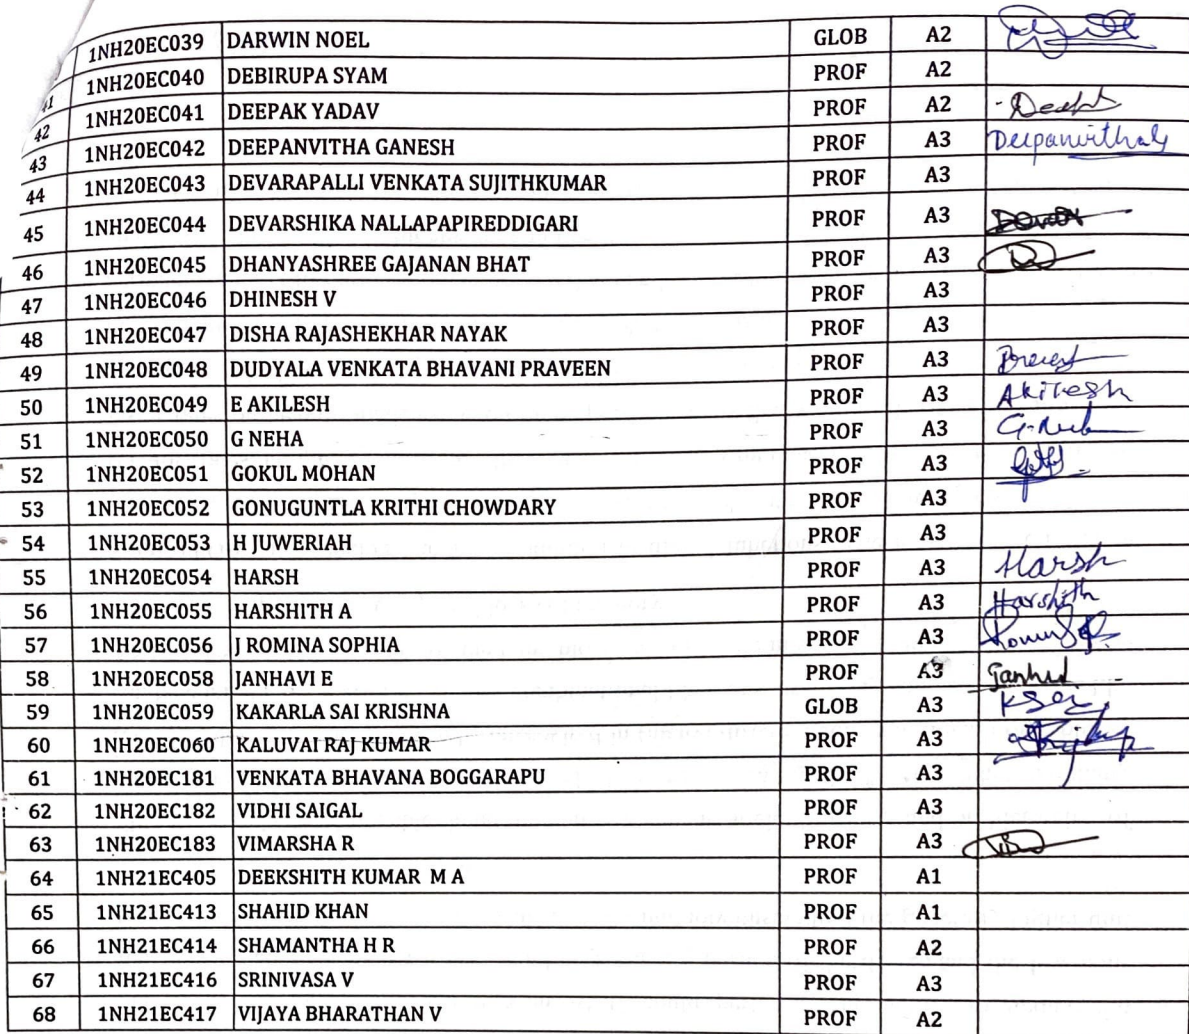 1NH20EC039 DARWIN NOEL GLOB A2
41 1NH20EC040 DEBIRUPA SYAM PROF A2
42 1NH20EC041 DEEPAK YADAV PROF A2
43 1NH20EC042 DEEPANVITHA GANESH PROF A3 DeepanvithaG
44 1NH20EC043 DEVARAPALLI VENKATA SUJITHKUMAR PROF A3
45 1NH20EC044 DEVARSHIKA NALLAPAPIREDDIGARI PROF A3
46 1NH20EC045 DHANYASHREE GAJANAN BHAT PROF A3
47 1NH20EC046 DHINESH V PROF A3
48 1NH20EC047 DISHA RAJASHEKHAR NAYAK PROF A3
49 1NH20EC048 DUDYALA VENKATA BHAVANI PRAVEEN PROF A3
50 1NH20EC049 E AKILESH PROF A3 Akilesh
51 1NH20EC050 G NEHA PROF A3
52 1NH20EC051 GOKUL MOHAN PROF A3
53 1NH20EC052 GONUGUNTLA KRITHI CHOWDARY PROF A3
54 1NH20EC053 H JUWERIAH PROF A3
55 1NH20EC054 HARSH PROF A3 Harsh
56 1NH20EC055 HARSHITH A PROF A3 Harshith
57 1NH20EC056 J ROMINA SOPHIA PROF A3
58 1NH20EC058 JANHAVI E PROF A3
59 1NH20EC059 KAKARLA SAI KRISHNA GLOB A3
60 1NH20EC060 KALUVAI RAJ KUMAR PROF A3
61 1NH20EC181 VENKATA BHAVANA BOGGARAPU PROF A3
62 1NH20EC182 VIDHI SAIGAL PROF A3
63 1NH20EC183 VIMARSHA R PROF A3
64 1NH21EC405 DEEKSHITH KUMAR M A PROF A1
65 1NH21EC413 SHAHID KHAN PROF A1
66 1NH21EC414 SHAMANTHA H R PROF A2
67 1NH21EC416 SRINIVASA V PROF A3
68 1NH21EC417 VIJAYA BHARATHAN V PROF A2